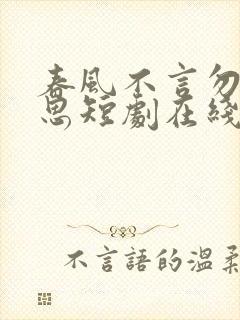 春風不言勿
思短劇在綫
不言語的溫柔